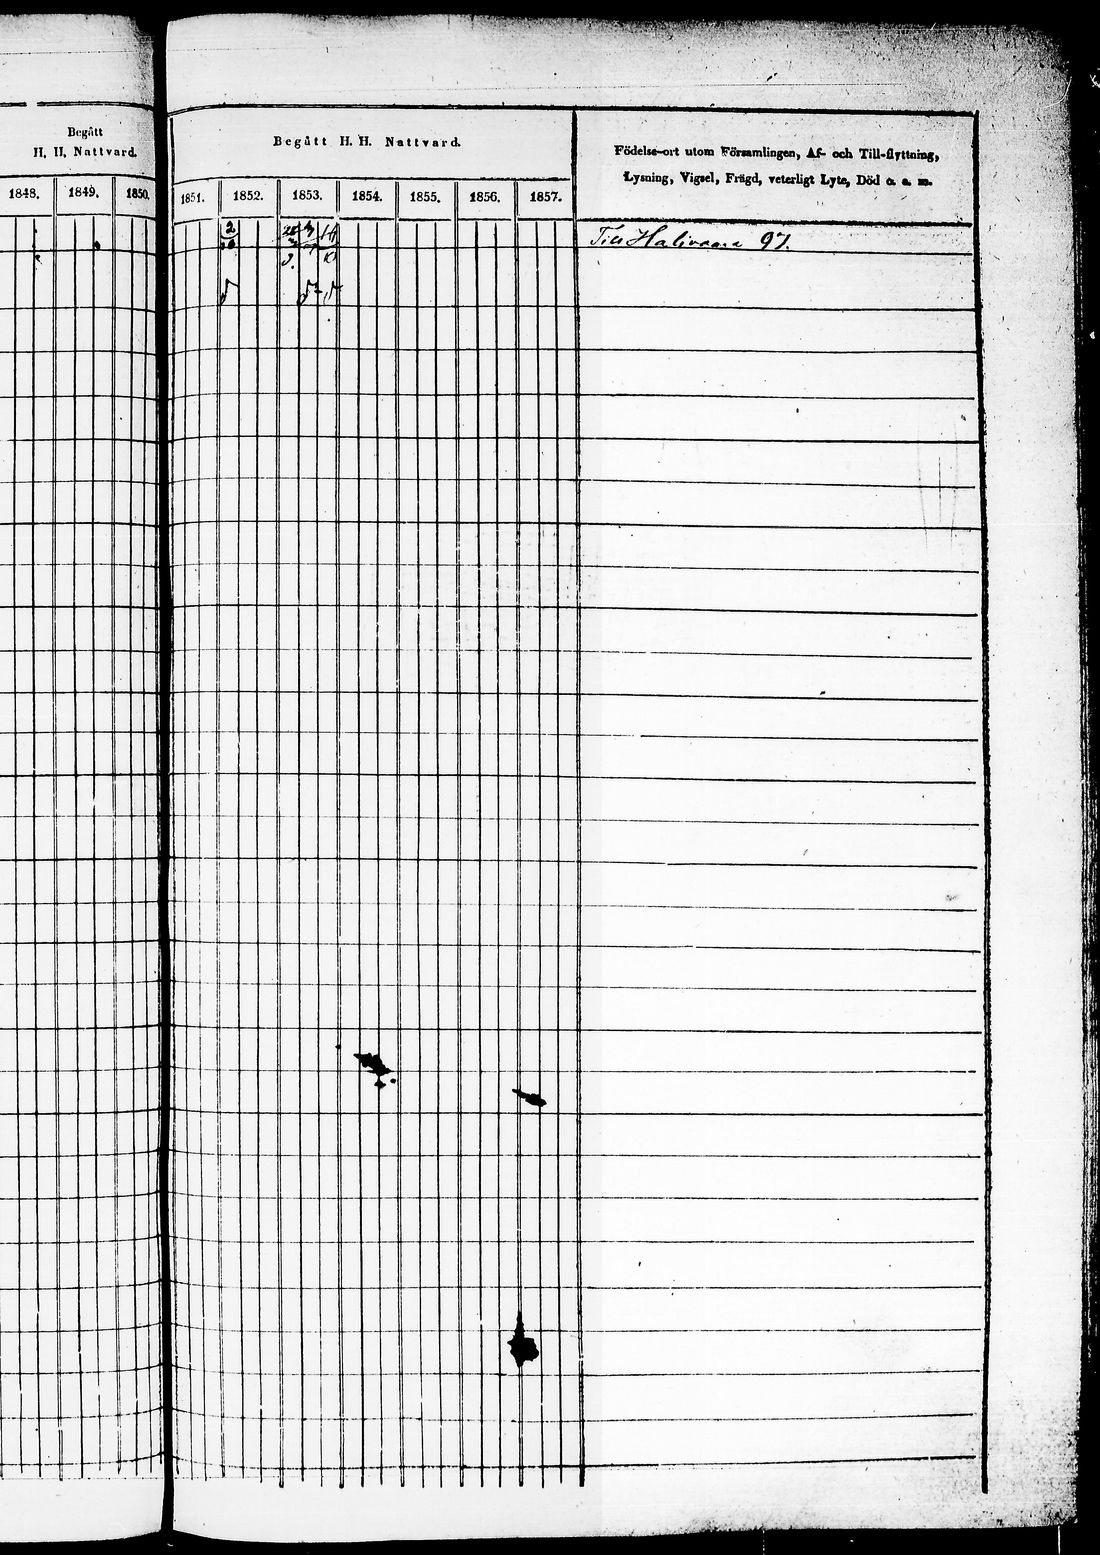 Begått
H. H. Nattvard.
1848. 1849. 1850.
Begått H. H. Nattvard.
1851. 1852. 1853. 1854. 1855. 1856. 1857.
Födelse-ort utom Församlingen, Af- och Till-flyttning,
Lysning, Vigsel, Frägd, veterligt Lyte, Död o. s. m.
2
Till Halivaara 97.